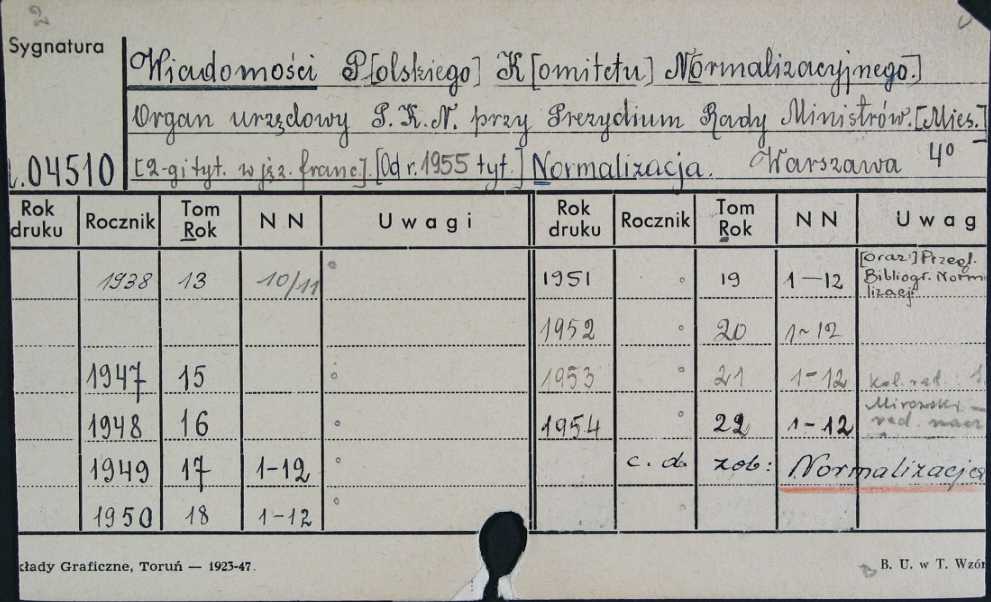 Sygnatura
Wiadomości P[olskiego] K[omitetu] Normalizacyjnego.]
Organ urzędowy P.K.N. przy Prezydium Rady Ministrów. [Mies.]
04510 [2-gi tyt. w jęz. franc]. [Od r. 1955 tyt.] Normalizacja. Warszawa 4º
Rok druku Rocznik Tom Rok N N Uwagi Rok druku Rocznik Tom Rok N N Uwag
1938 13 10/11 1951 19 1—12 [oraz] Przegl. Bibliogr. Norm lizacji
1952 20 1-12
1947 15 1953 21 1-12 kol. red. :
1948 16 1954 22 1-12 Mirowski — red. nacz
1949 17 1-12 c. d. zob: Normalizacja
1950 18 1-12
kłady Graficzne, Toruń — 1923-47. B. U. w T. Wzór